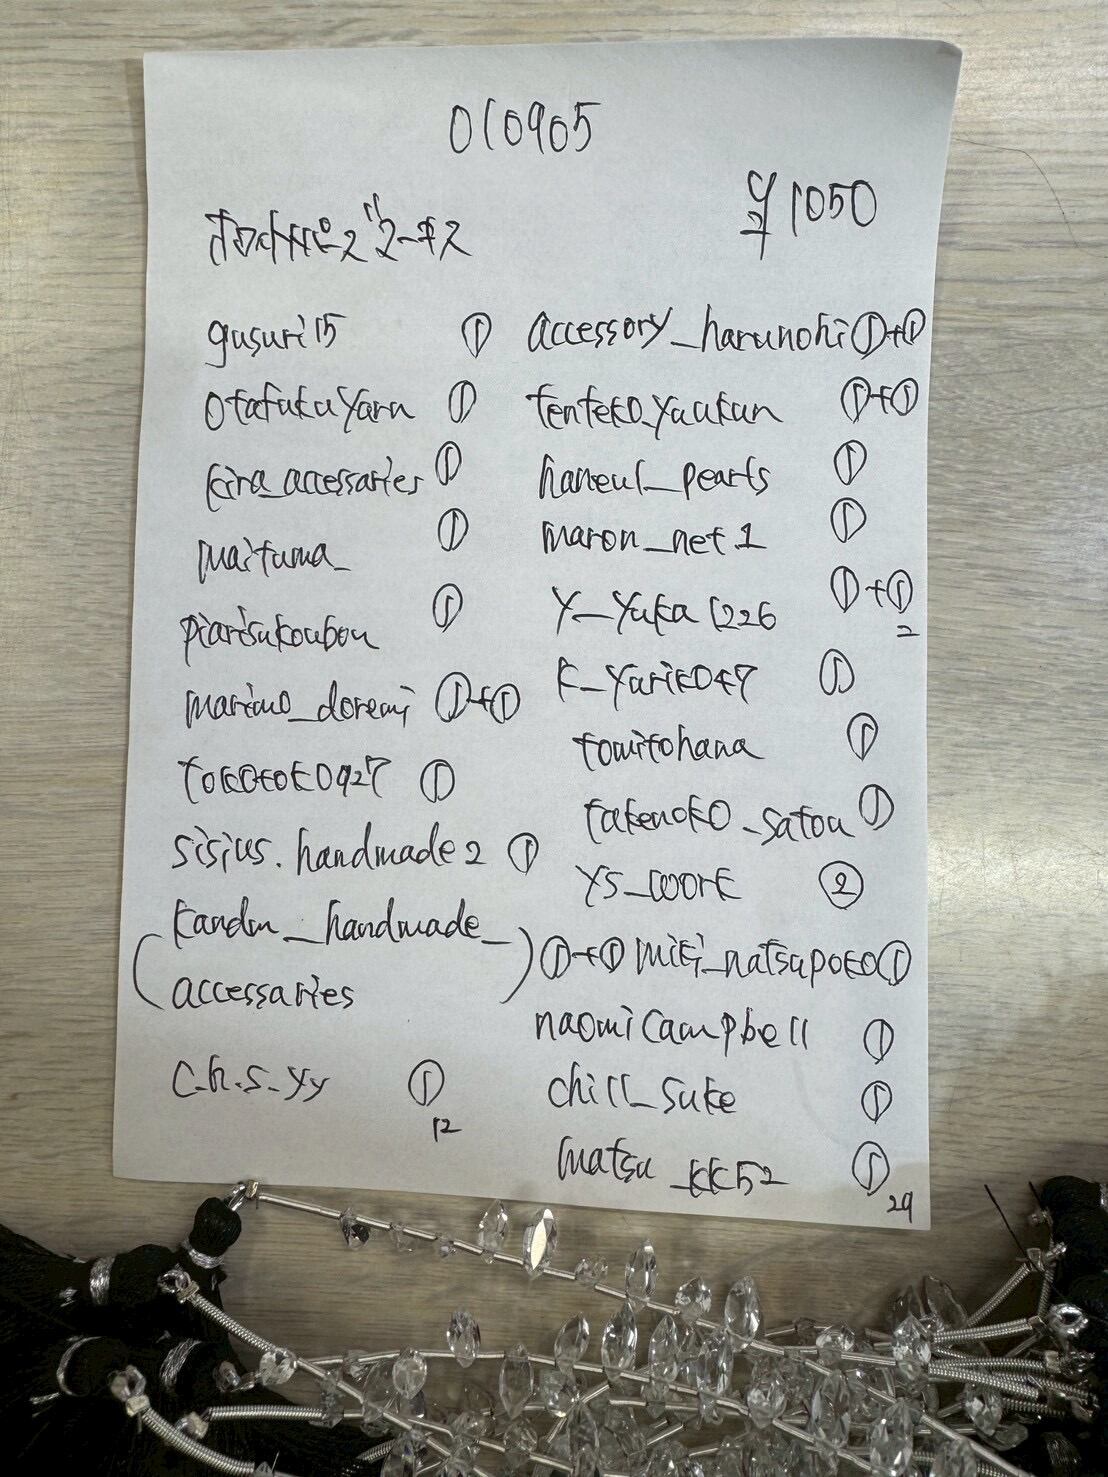 010905
¥1050
gusuri15 ①
otafukuyarn ①
kira_accessaries ①
maituma_ ①
piarisukoubou ①
marimo_doremi ①+①
tokotoko927 ①
sisius.handmade2 ①
(kandm_handmade_
accessaries) ①+①
c.h.s_yy ①
12
accessory_harunohi ①+①
tenteko_yuukun ①+①
haneul_pearls ①
maron_net1 ①
y_yuka1226 ①+①
2
k_yuriko47 ①
tomitohana ①
takenoko_satou ①
ys_work ②
miki_natsupoko ①
naomicampbell ①
chill_suke ①
matsu_kk52 ①
29